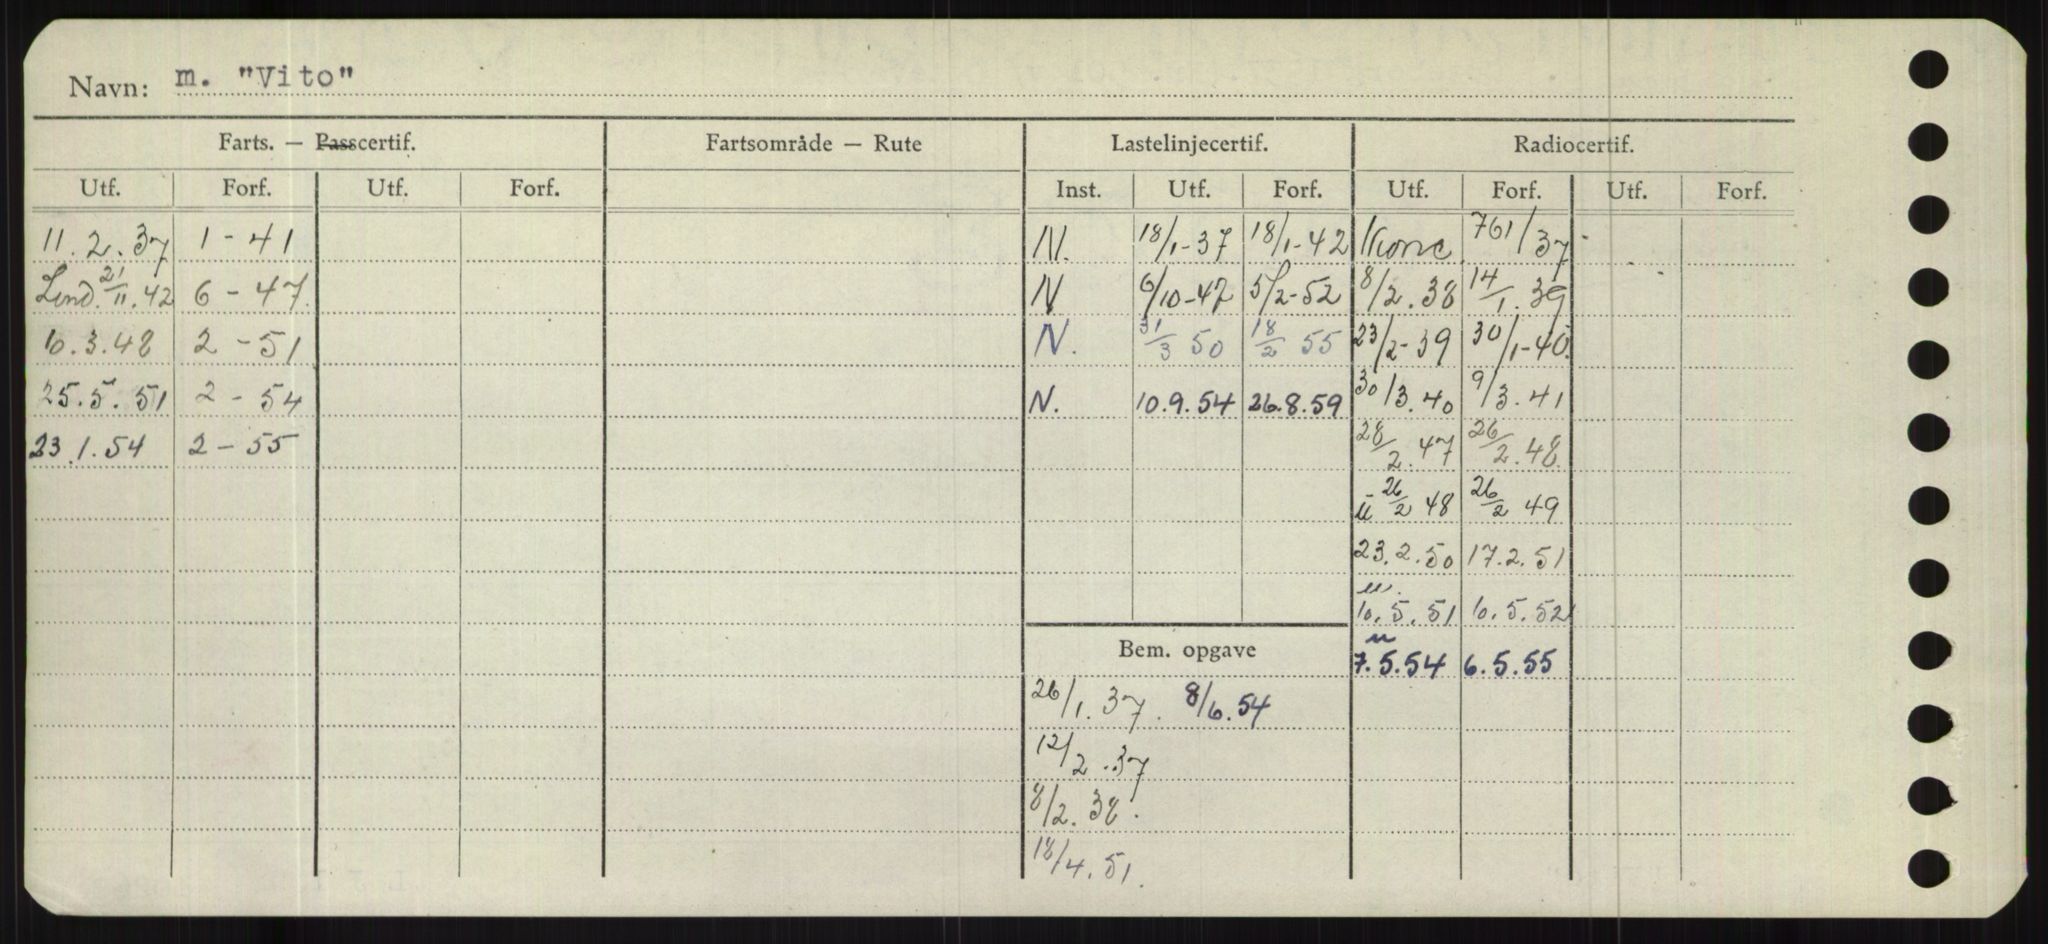 Navn: m. "Vito"
Farts. — Passcertif. Fartsområde — Rute Lastelinjecertif. Radiocertif.
Utf. Forf. Utf. Forf. Inst. Utf. Forf. Utf. Forf. Utf. Forf.
11.2.37 1-41 N. 18/1-37 18/1-42 761/37
Lond. 21/11.42 6-47. N 6/10-47 5/2-52 8/2.38 14/1.39
10.3.48 2-51 N. 31/3 50 18/2 55 23/2-39 30/1-40.
25.5.51 2-54 N. 10.9.54 26.8.59 30/3.40 9/3.41
23.1.54 2-55 28/2.47 26/2.48
26/2 48 26/2 49
23.2.50 17.2.51
10.5.51 10.5.52
Bem. opgave 7.5.54 6.5.55
26/1.37. 8/6.54
12/2.37
8/2.38.
18/4.51.